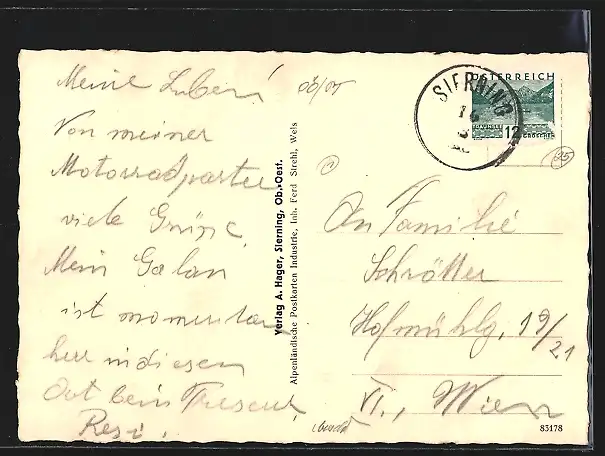 Meine Lieben!
Von meiner
Motorradpartie
viele Grüße,
Mein Galan
ist momentan
hier in diesem
Ort beim Friseur,
Resi.
Verlag A. Hager, Sierning, Ob.-Oest.
Alpenländische Postkarten Industrie, Inh. Ferd Strehl, Wels
SIERNING
ÖSTERREICH
TRAUNSEE
12
GROSCHEN
25
An Familie
Schrötter
Hofmühlg. 19/21
VI., Wien
83178